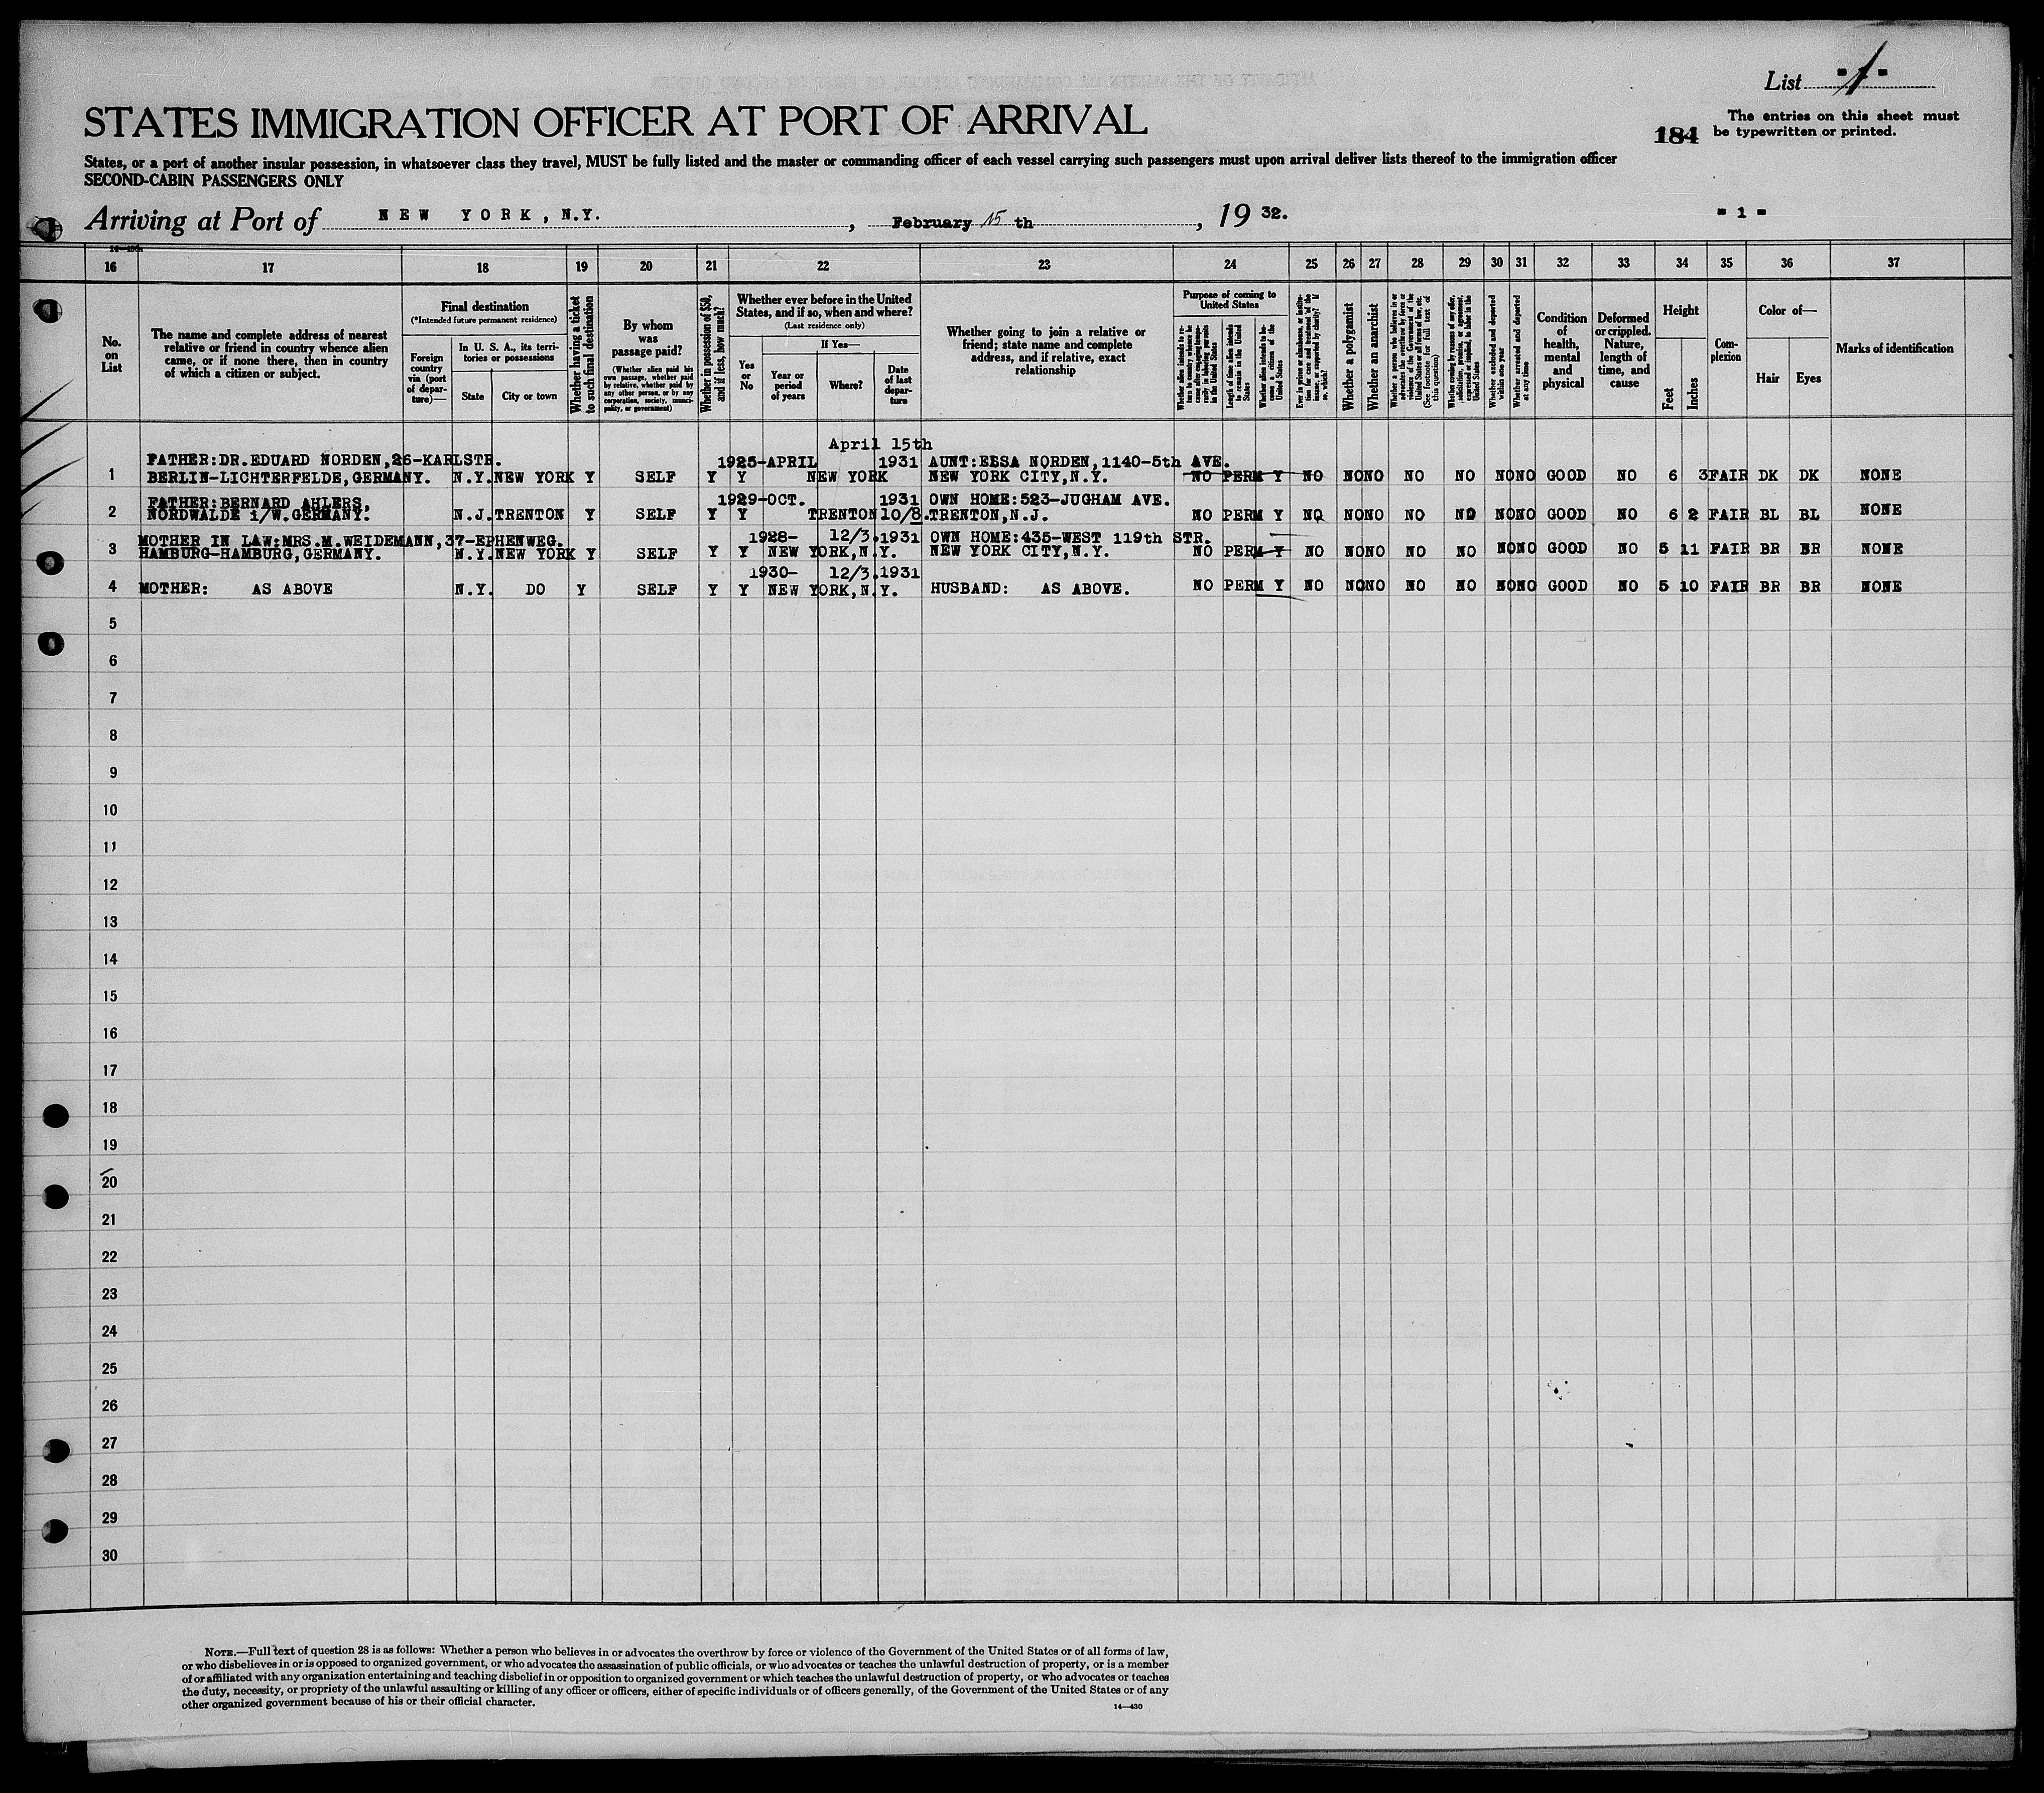 List "1"
STATES IMMIGRATION OFFICER AT PORT OF ARRIVAL
184
The entries on this sheet must
be typewritten or printed.
States, or a port of another insular possession, in whatsoever class they travel, MUST be fully listed and the master or commanding officer of each vessel carrying such passengers must upon arrival deliver lists thereof to the immigration officer
SECOND-CABIN PASSENGERS ONLY
Arriving at Port of NEW YORK, N.Y. , February 15 th , 19 32.
- 1 -
16 17 18 19 20 21 22 23 24 25 26 27 28 29 30 31 32 33 34 35 36 37
No.
on
List
The name and complete address of nearest
relative or friend in country whence alien
came, or if none there, then in country
of which a citizen or subject.
Final destination
(*Intended future permanent residence)
Foreign
country
via (port
of depar-
ture)—
In U. S. A., its terri-
tories or possessions
State
City or town
Whether having a ticket
to such final destination
By whom
was
passage paid?
(Whether alien paid his
own passage, whether paid
by relative, whether paid by
any other person, or by any
corporation, society, munici-
pality, or government)
Whether in possession of $50,
and if less, how much?
Whether ever before in the United
States, and if so, when and where?
(Last residence only)
Yes
or
No
If Yes—
Year or
period
of years
Where?
Date
of last
depar-
ture
Whether going to join a relative or
friend; state name and complete
address, and if relative, exact
relationship
Purpose of coming to
United States
Length of time alien intends
to remain in the United
States
Whether alien intends to be-
come a citizen of the
United States
Whether a polygamist
Whether an anarchist
(See footnote for full text of
this question)
Whether excluded and deported
within one year
Whether arrested and deported
at any time
Condition
of
health,
mental
and
physical
Deformed
or crippled.
Nature,
length of
time, and
cause
Height
Feet
Inches
Com-
plexion
Color of—
Hair
Eyes
Marks of identification
April 15th
FATHER:DR.EDUARD NORDEN,26-KARLSTR. 1925-APRIL 1931 AUNT:EESA NORDEN,1140-5th AVE.
1 BERLIN-LICHTERFELDE,GERMANY. N.Y. NEW YORK Y SELF Y Y NEW YORK NEW YORK CITY,N.Y. NO PERM Y NO NO NO NO NO NO NO GOOD NO 6 3 FAIR DK DK NONE
FATHER:BERNARD AHLERS, 1929-OCT. 1931 OWN HOME:523-JUGHAM AVE.
2 NORDWALDE i/W.GERMANY. N.J. TRENTON Y SELF Y Y TRENTON 10/8. TRENTON,N.J. NO PERM Y NO NO NO NO NO NO NO GOOD NO 6 2 FAIR BL BL NONE
MOTHER IN LAW:MRS.M.WEIDEMANN,37-EPHENWEG. 1928- 12/3.1931 OWN HOME:435-WEST 119th STR.
3 HAMBURG-HAMBURG,GERMANY. N.Y. NEW YORK Y SELF Y Y NEW YORK,N.Y. NEW YORK CITY,N.Y. NO PERM Y NO NO NO NO NO NO NO GOOD NO 5 11 FAIR BR BR NONE
1930- 12/3.1931
4 MOTHER: AS ABOVE N.Y. DO Y SELF Y Y NEW YORK,N.Y. HUSBAND: AS ABOVE. NO PERM Y NO NO NO NO NO NO NO GOOD NO 5 10 FAIR BR BR NONE
5
6
7
8
9
10
11
12
13
14
15
16
17
18
19
20
21
22
23
24
25
26
27
28
29
30
NOTE.—Full text of question 28 is as follows: Whether a person who believes in or advocates the overthrow by force or violence of the Government of the United States or of all forms of law,
or who disbelieves in or is opposed to organized government, or who advocates the assassination of public officials, or who advocates or teaches the unlawful destruction of property, or is a member
of or affiliated with any organization entertaining and teaching disbelief in or opposition to organized government or which teaches the unlawful destruction of property, or who advocates or teaches
the duty, necessity, or propriety of the unlawful assaulting or killing of any officer or officers, either of specific individuals or of officers generally, of the Government of the United States or of any
other organized government because of his or their official character.
14—430